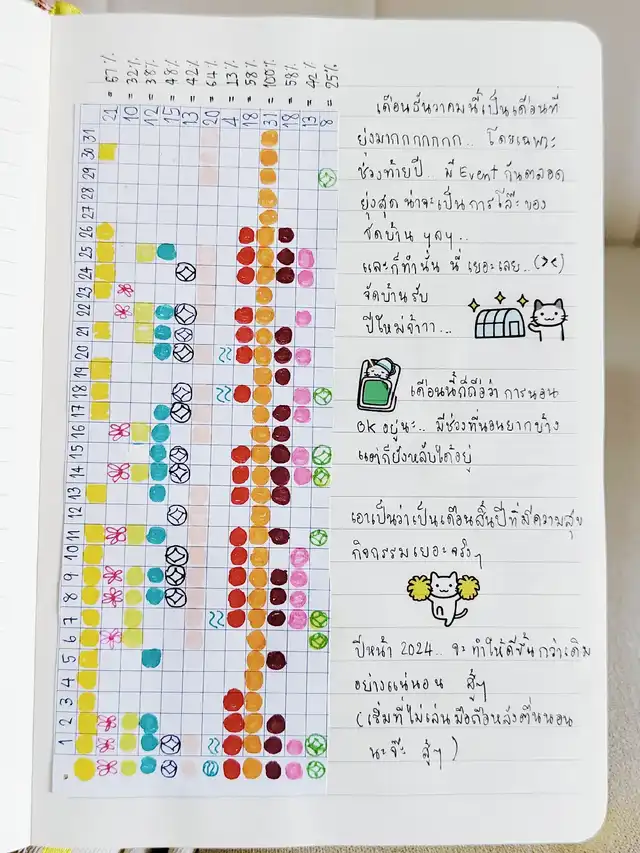 = 67%
= 32%
= 38%
= 48%
= 42%
= 64%
= 13%
= 58%
= 100%
= 58%
= 42%
= 25%
21
10
12
15
13
20
4
18
31
18
13
8
31
30
29
28
27
26
25
24
23
22
21
20
19
18
17
16
15
14
13
12
11
10
9
8
7
6
5
4
3
2
1
เดือนธันวาคมนี้เป็นเดือนที่
ยุ่งมากกกกกกก.. โดยเฉพาะ
ช่วงท้ายปี.. มี Event กันตลอด
ยุ่งสุด น่าจะเป็น การโล๊ะ ของ
จัดบ้าน ๆลๆ...
และก็ทำนั่น นี่ เยอะเลย.. (><)
จัดบ้านรับ
ปีใหม่จ้าาา...
เดือนนี้ก็ถือว่า การนอน
OK อยู่นะ.. มีช่วงที่นอนยากบ้าง
แต่ก็ยังหลับได้อยู่
เอาเป็นว่าเป็นเดือนสิ้นปีที่มีความสุข
กิจกรรมเยอะจริงๆ
ปีหน้า 2024.. จะ ทำให้ดีขึ้นกว่าเดิม
อย่างแน่นอน สู้ๆ
(เริ่มที่ไม่เล่นมือถือหลังตื่นนอน
นะจ๊ะ สู้ๆ)